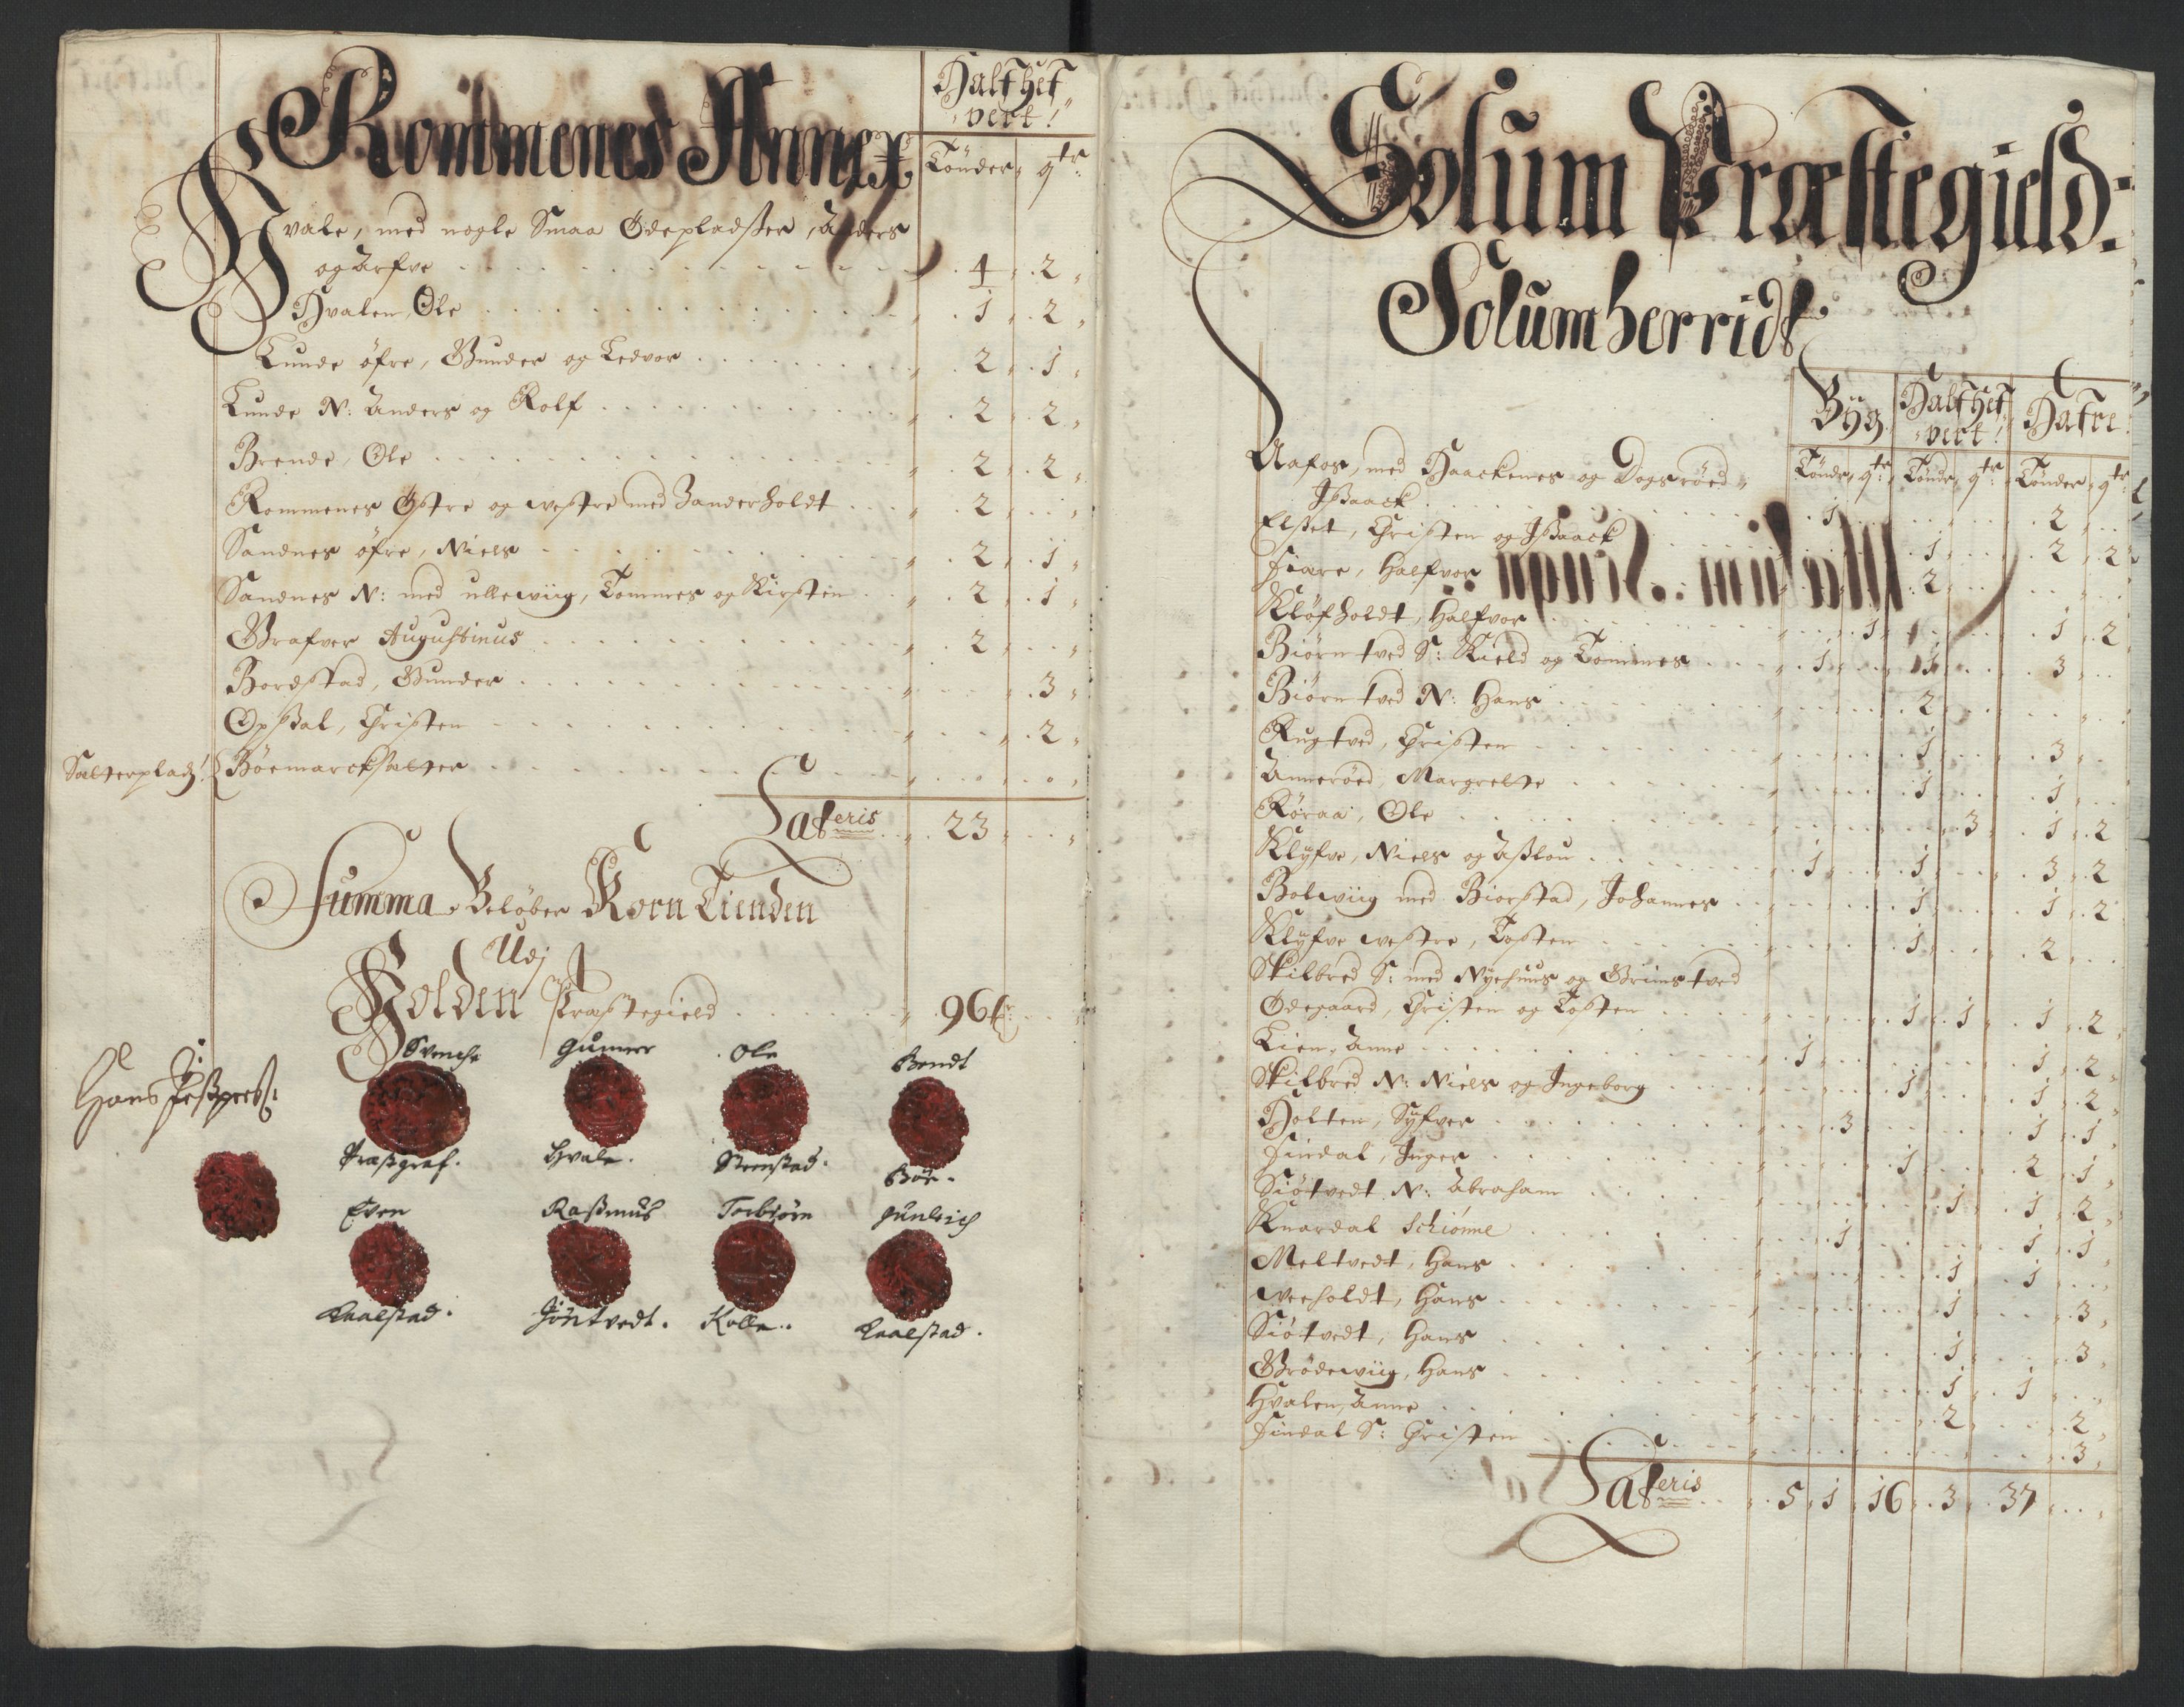 Rommenes Annex
Half hef
vert!
Tönder qtr
Hvale, med nogle Smaa Ødepladsser, Anders
og Arfve 4 2
Hvalen, Ole 1 2
Lunde öfre, Gunder og Ledvor 2 1
Lunde N: Anders og Rolf 2 2
Brende, Ole 2 2
Rommenes Østre og westre med Zanderholdt 2
Sandnes öfre, Niels 2 1
Sandnes N: med ullewiig, Tommes og Kirsten 2 1
Grafver Augustinus 2
Bordstad, Gunder 3
Opsal, Christen 2
Salterpladz! Böemarcksalter
Lateris 23
Summa Beløber Korn Tienden
Udj
Holden Præstegield 96
Hans
Svenche Gunner Ole Bendt
Præstgraf. Hvale. Steenstad. Böe.
Even Rasmus Torbiörn Gunleich
Kaalstad. Jöntvedt. Kolle. Kaalstad.
Solum Præstegield:
Solumherridt
Byg Half hef vert! Hafre
Tönder qtr Tönder qtr Tönder qtr
Aafos, med Haackenes og Dogsröed
Issaack 1 2
Elset, Christen og Issaack 1 2 2
Fiære, Halfvor 2
Klöfholdt, Halfvor 1 1 2
Biörntved S: Kield og Tommes 1 1 3
Biörntved N: Hans 2
Rugtved, Christen 1 3
Anneröed, Margrette 1 1
Röraa, Ole 3 1 2
Klyfve, Niels og Asslou 1 1 3 2
Bolwiig med Biorstad, Johannes 1 1 2
Klyfve westre, Tosten 1 2
Skilbred S: med Nyehuus og Grimstved
Ødegaard, Christen og Tosten 1 1 1 2
Lien, Anne 1 1 2
Skilbred N: Niels og Ingeborg 1 1 2
Holten, Syfver 3 1 1
Findal, Inger 1 2 1
Siötvedt N: Abraham 1 1 2
Knardal Schiönne 1 1 1
Meltvedt, Hans 1 1
weeholdt, Hans 1 3
Siötvedt, Hans 1 3
Grödewiig, Hans 1 1
Hvalen, Anne 2 2
Findal S: Christen 3
Lateris 5 1 16 3 37